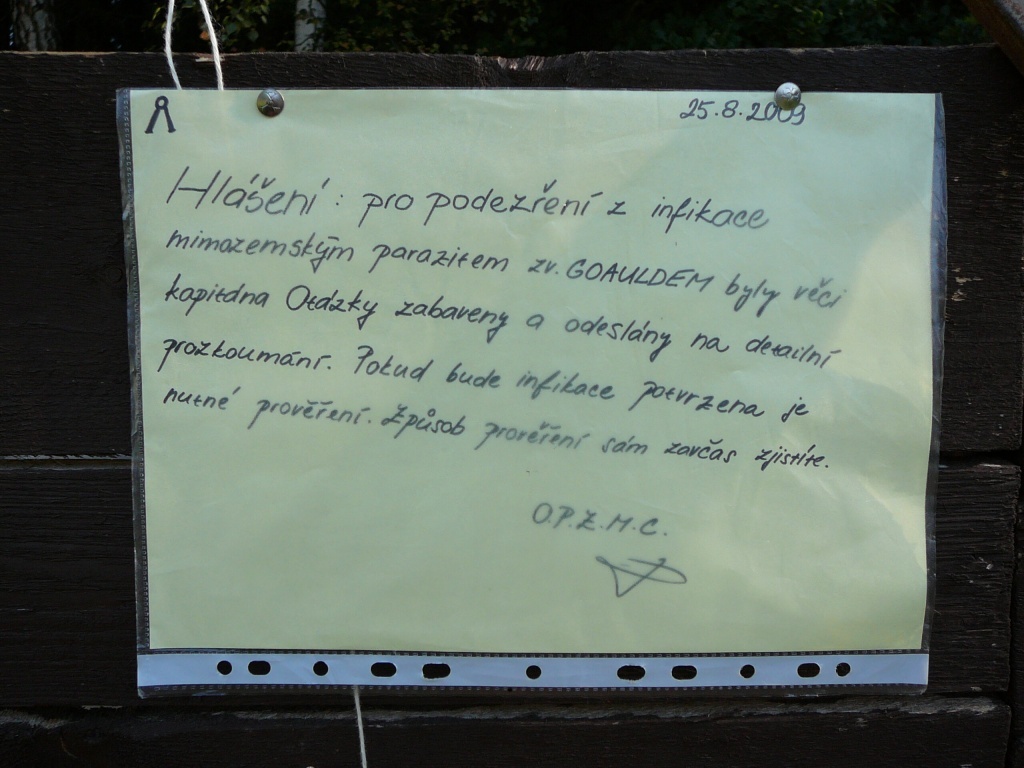 25.8.2009
Hlášení: pro podezření z infikace
mimozemským parazitem zv. GOAULDEM byly věci
kapitána Otázky zabaveny a odeslány na detailní
prozkoumání. Pokud bude infikace potvrzena je
nutné prověření. Způsob prověření sám zavčas zjistíte.
O.P.Z.M.C.